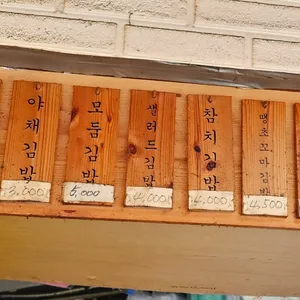 야채김밥
3,000
모둠김밥
5,000
샐러드김밥
4,000
참치김밥
4,000
땡초꼬마김밥
4,500